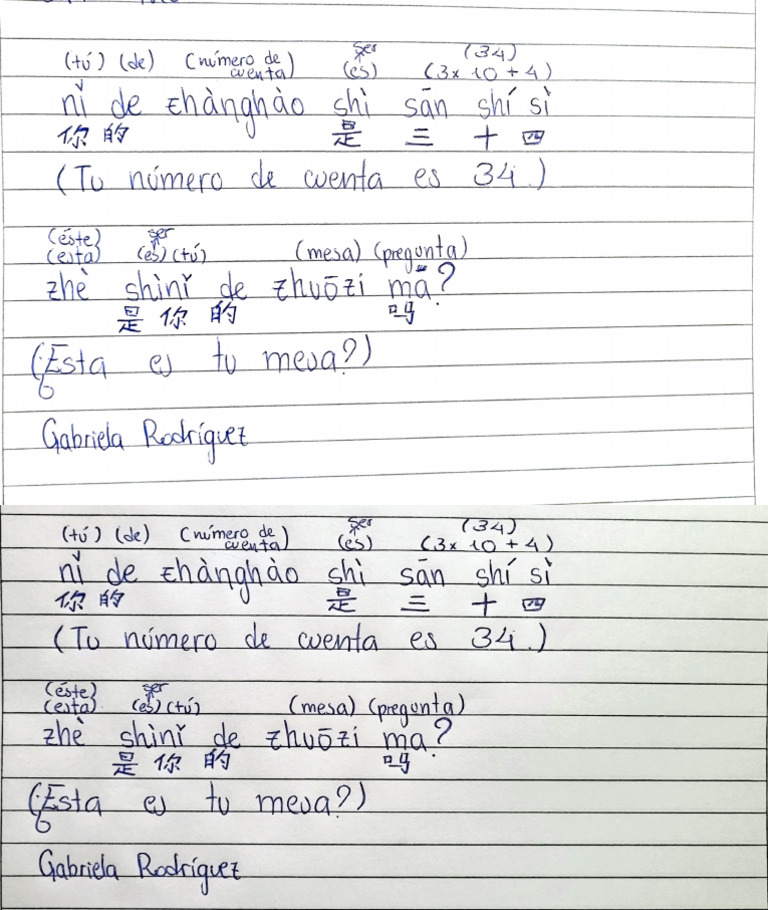 (tú) (de) (número de cuenta) ser (es) (34) (3x 10 + 4)
nǐ de zhànghào shì sān shí sì
你 的 是 三 十 四
(Tu número de cuenta es 34.)
(éste) (esta) ser (es) (tú) (mesa) (pregunta)
zhè shìnǐ de zhuōzi mā?
是 你 的 吗
(¿Esta es tu mesa?)
Gabriela Rodríguez
(tú) (de) (número de cuenta) ser (es) (34) (3x 10 + 4)
nǐ de zhànghào shì sān shí sì
你 的 是 三 十 四
(Tu número de cuenta es 34.)
(éste) (esta) ser (es) (tú) (mesa) (pregunta)
zhè shìnǐ de zhuōzi ma?
是 你 的 吗
(¿Esta es tu mesa?)
Gabriela Rodríguez